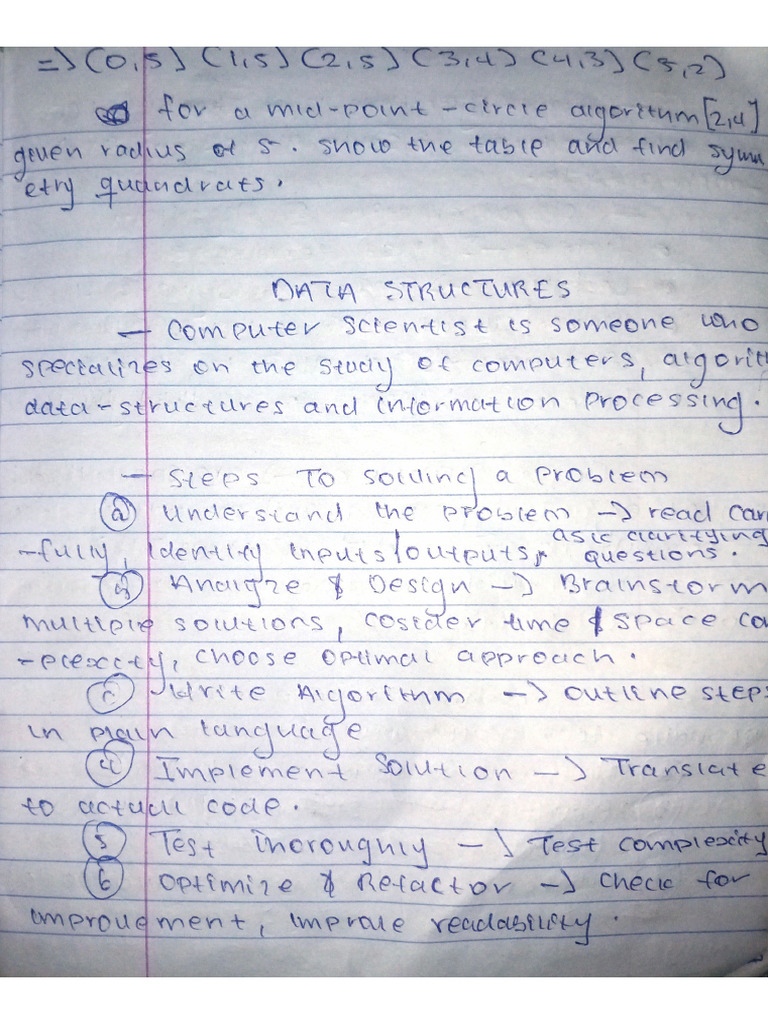 => (0,5) (1,5) (2,5) (3,4) (4,3) (5,2)
for a mid-point-circle algorithm [2,4]
given radius of 5. show the table and find symm
etry quandrats.
DATA STRUCTURES
- Computer Scientist is someone who
specializes on the study of computers, algorit
data-structures and information processing.
- Steps To solving a problem
Understand the problem -> read car
asic clarifying
-fully, Identity inputs/outputs, questions.
Analyze & Design -> Brainstorm
multiple solutions, cosider time & space co
-plexcity, choose optimal approach.
Write Algorithm -> outline steps
in plain language
4 Implement Solution -> Translate
to actuall code.
5 Test Thoroughly -> Test complexcity
6 Optimize & Refactor -> check for
improvement, improve readability.